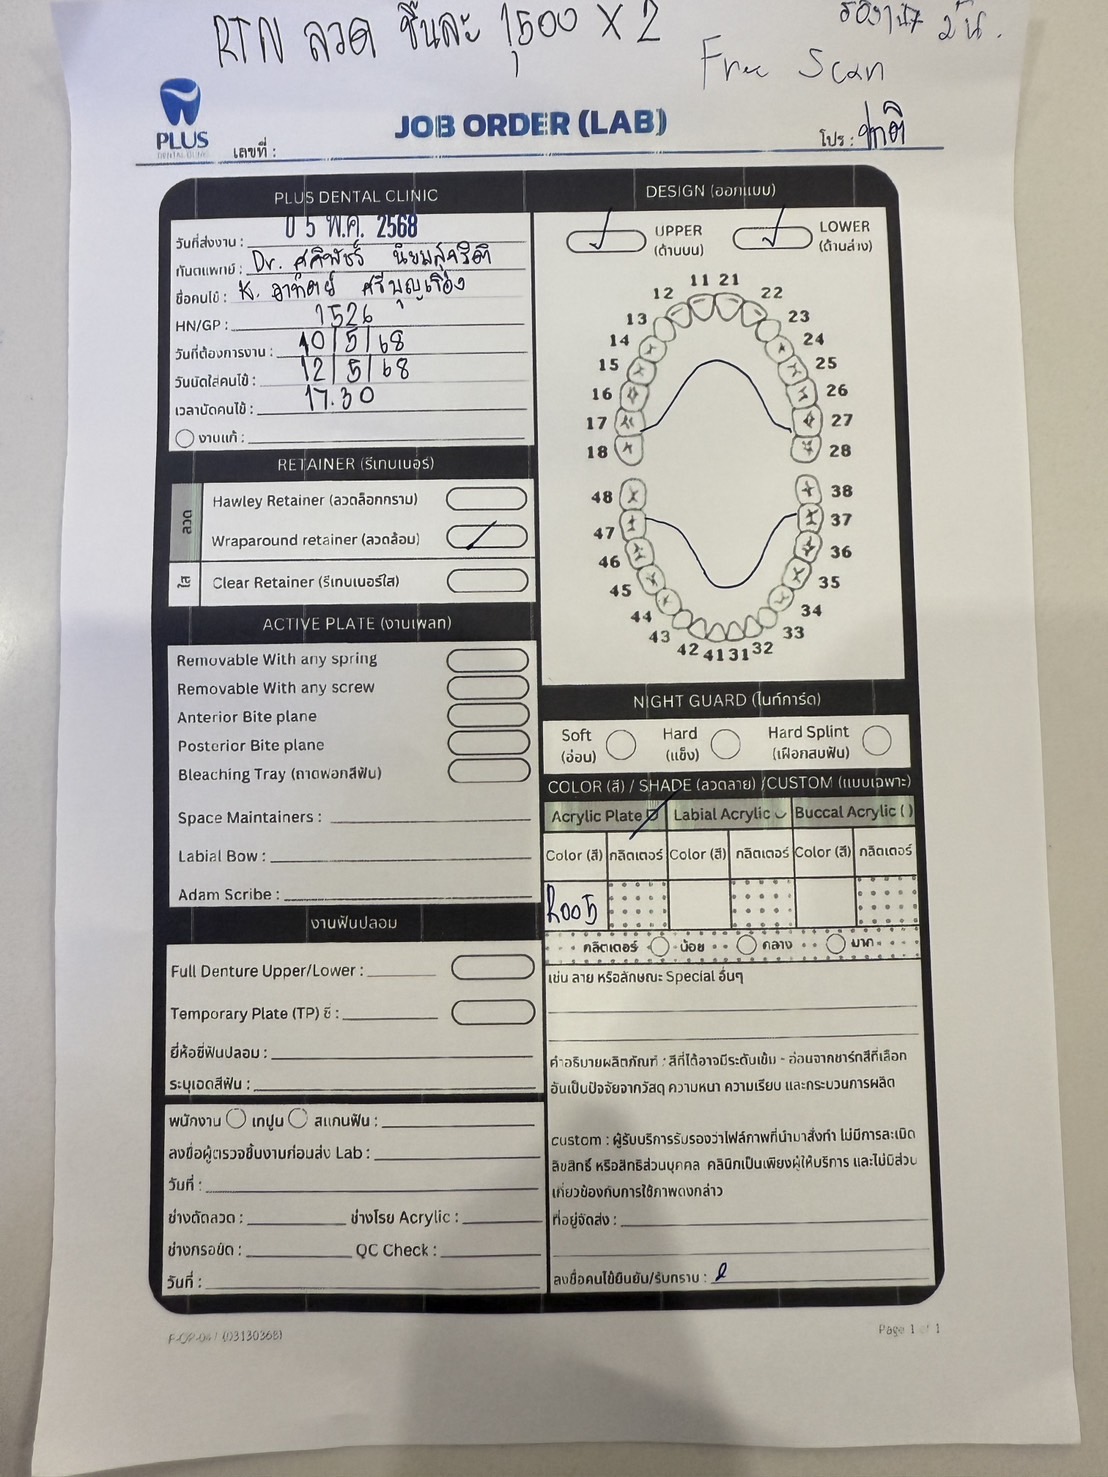 RTN ลวด ชิ้นละ 1,500 X 2
Free Scan
PLUS
DENTAL CLINIC
JOB ORDER (LAB)
เลขที่ :
โปร : ปกติ
PLUS DENTAL CLINIC
วันที่ส่งงาน : 0 5 พ.ค. 2568
ทันตแพทย์ : Dr.
ชื่อคนไข้ : K. อาทิตย์ ศรีบุญเรือง
HN/GP : 1526
วันที่ต้องการงาน : 10/5/68
วันนัดใส่คนไข้ : 12/5/68
เวลานัดคนไข้ : 17.30
งานแก้ :
RETAINER (รีเทนเนอร์)
ลวด
Hawley Retainer (ลวดล็อกกราม)
Wraparound retainer (ลวดล้อม)
ใส
Clear Retainer (รีเทนเนอร์ใส)
ACTIVE PLATE (งานเพลท)
Removable With any spring
Removable With any screw
Anterior Bite plane
Posterior Bite plane
Bleaching Tray (ถาดฟอกสีฟัน)
Space Maintainers :
Labial Bow :
Adam Scribe :
งานฟันปลอม
Full Denture Upper/Lower :
Temporary Plate (TP) ซี่ :
ยี่ห้อซี่ฟันปลอม :
ระบุเฉดสีฟัน :
พนักงาน เทปูน สแกนฟัน :
ลงชื่อผู้ตรวจชิ้นงานก่อนส่ง Lab :
วันที่ :
ช่างดัดลวด : ช่างโรย Acrylic :
ช่างกรอขัด : QC Check :
วันที่ :
DESIGN (ออกแบบ)
UPPER
(ด้านบน)
LOWER
(ด้านล่าง)
11 21
12 22
13 23
14 24
15 25
16 26
17 27
18 28
48 38
47 37
46 36
45 35
44 34
43 33
42 41 31 32
NIGHT GUARD (ไนท์การ์ด)
Soft
(อ่อน)
Hard
(แข็ง)
Hard Splint
(เฝือกสบฟัน)
COLOR (สี) / SHADE (ลวดลาย) /CUSTOM (แบบเฉพาะ)
Acrylic Plate Labial Acrylic Buccal Acrylic ( )
Color (สี) กลิตเตอร์ Color (สี) กลิตเตอร์ Color (สี) กลิตเตอร์
R005
กลิตเตอร์ น้อย กลาง มาก
เช่น ลาย หรือลักษณะ Special อื่นๆ
คำอธิบายผลิตภัณฑ์ : สีที่ได้อาจมีระดับเข้ม - อ่อนจากชาร์ทสีที่เลือก
อันเป็นปัจจัยจากวัสดุ ความหนา ความเรียบ และกระบวนการผลิต
custom : ผู้รับบริการรับรองว่าไฟล์ภาพที่นำมาสั่งทำ ไม่มีการละเมิด
ลิขสิทธิ์ หรือสิทธิส่วนบุคคล คลินิกเป็นเพียงผู้ให้บริการ และไม่มีส่วน
เกี่ยวข้องกับการใช้ภาพดังกล่าว
ที่อยู่จัดส่ง :
ลงชื่อคนไข้ยืนยัน/รับทราบ :
Page 1 of 1